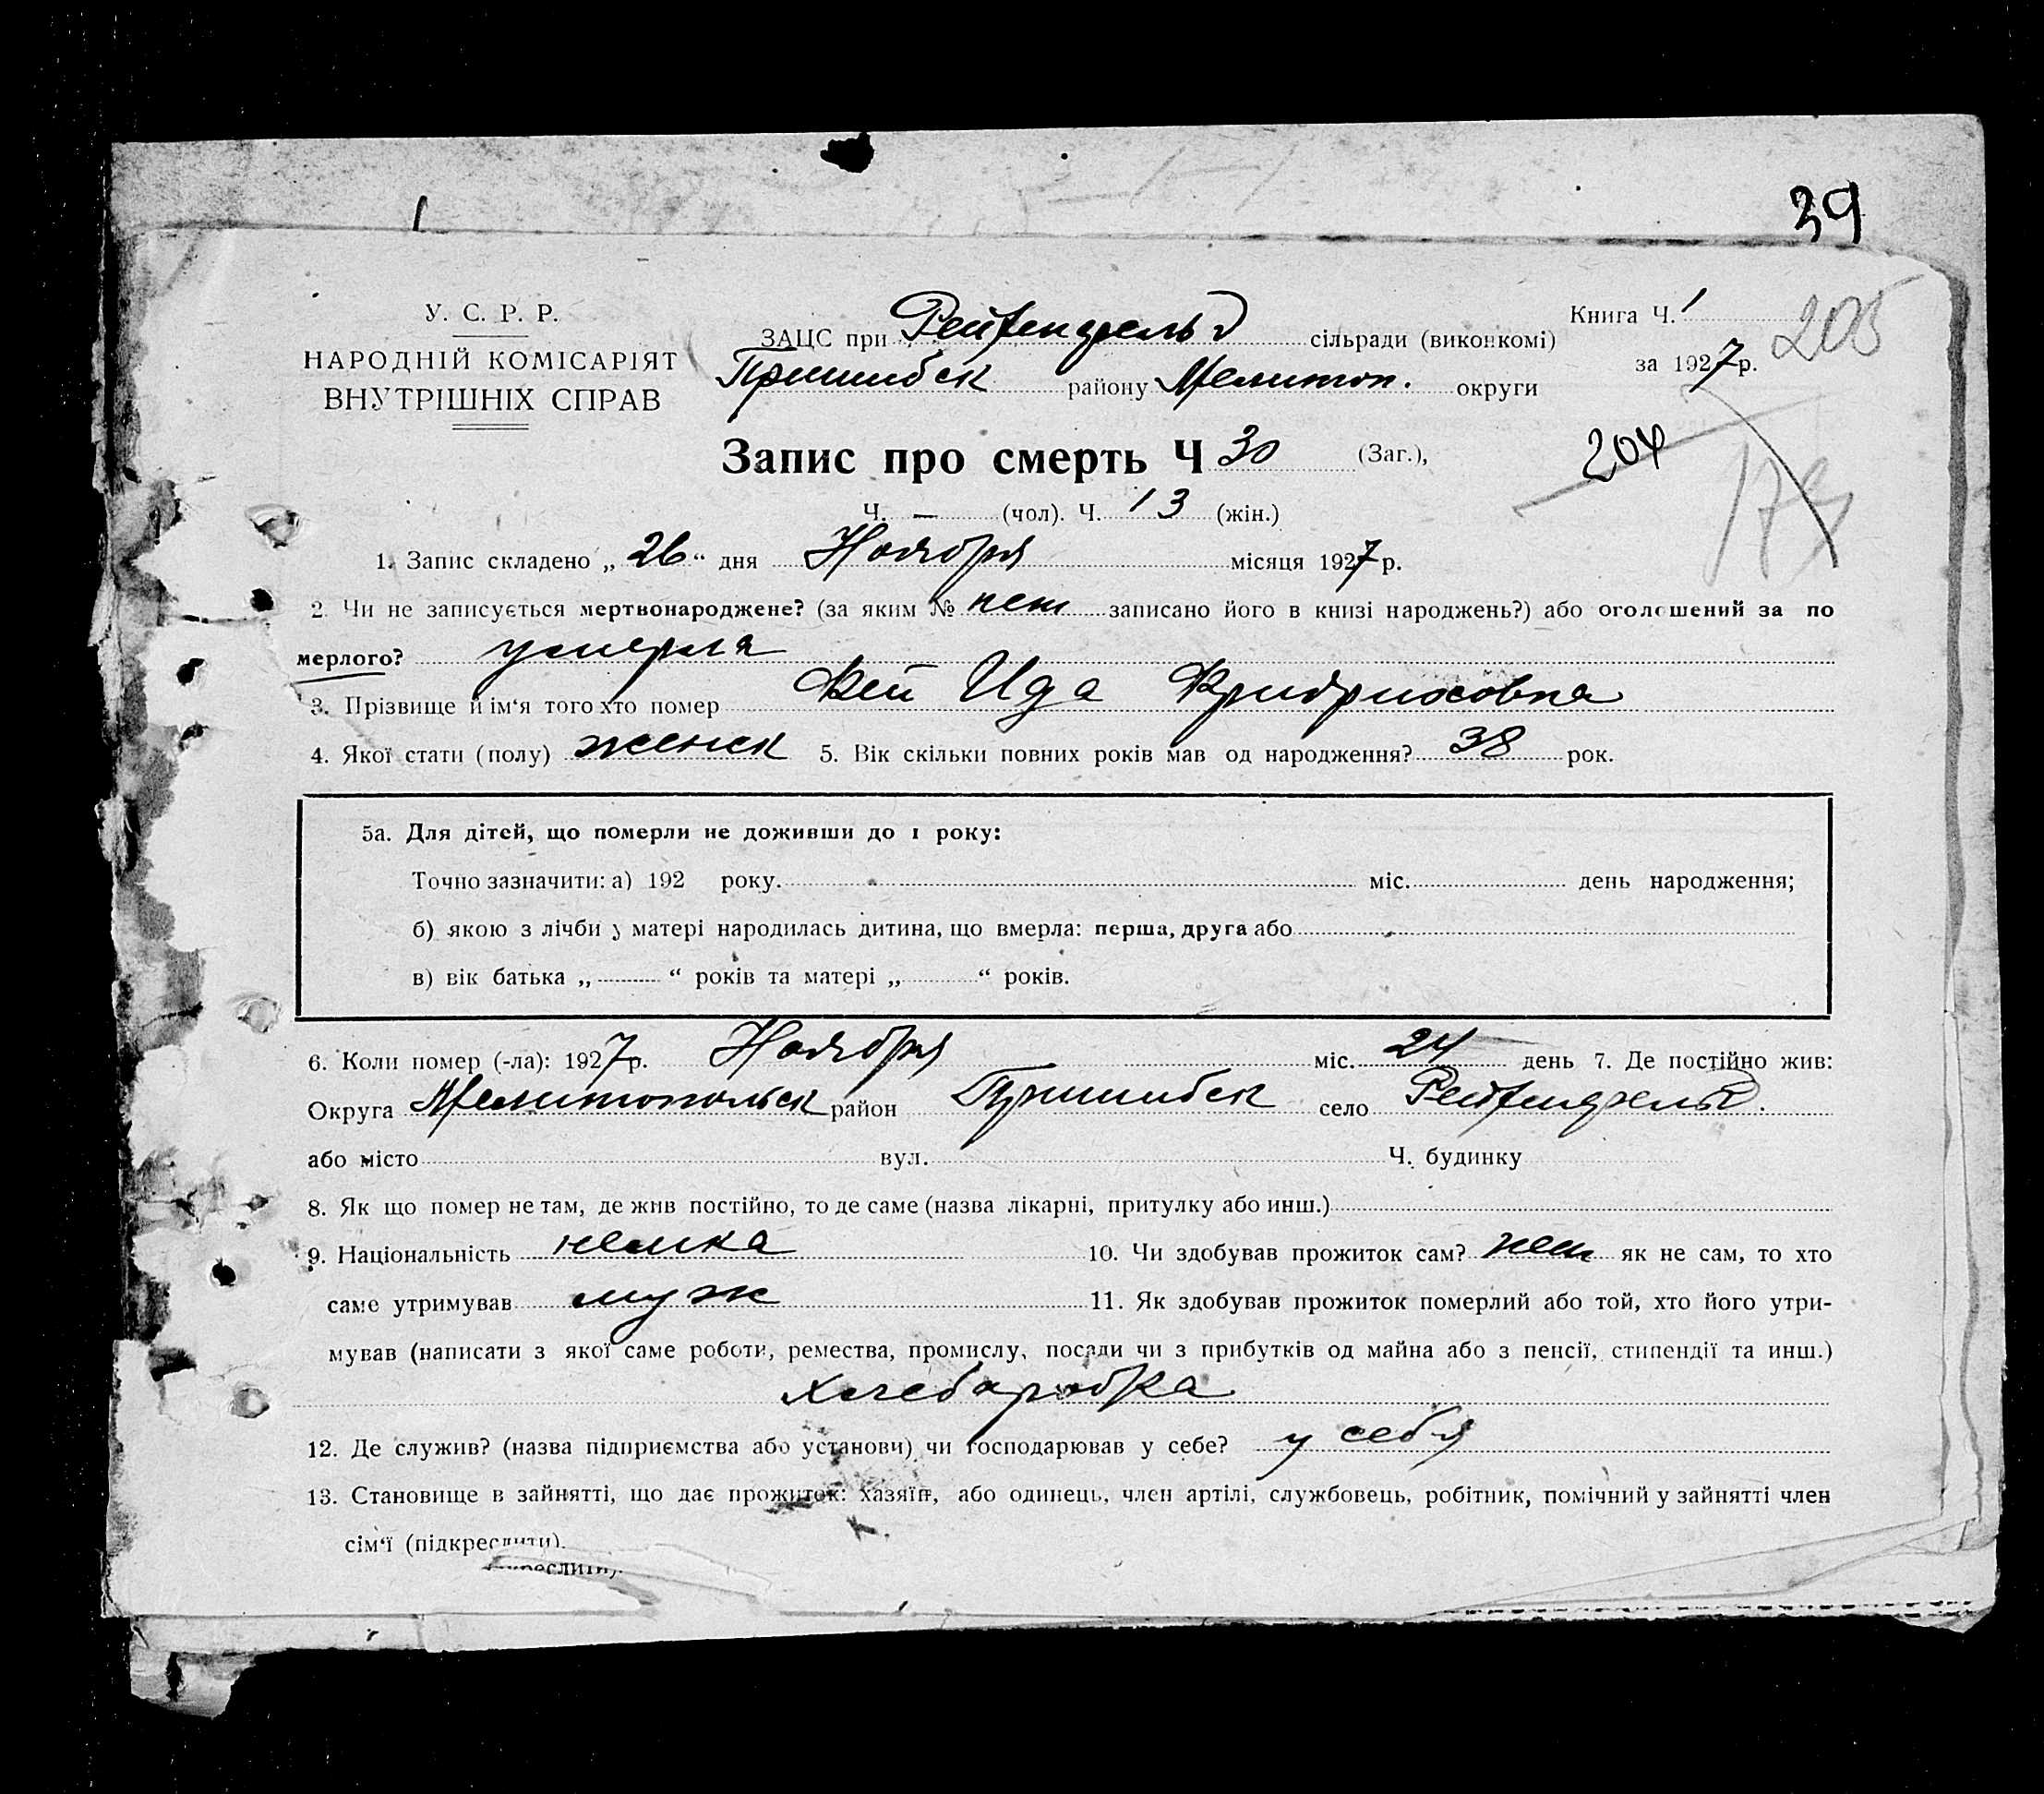 39
У. С. Р. Р.
НАРОДНІЙ КОМІСАРІЯТ
ВНУТРІШНІХ СПРАВ
ЗАЦС при Рейхенфельд сільради (виконкомі)
Пришибск району Мелитоп. округи
Книга Ч. 1
за 1927 р.
205
Запис про смерть Ч 30 (Заг.),
204
Ч. — (чол). Ч. 13 (жін.)
1. Запис складено „ 26 “ дня Ноября місяця 1927 р.
2. Чи не записується мертвонароджене? (за яким № нет записано його в книзі народжень?) або оголошений за по
мерлого? умерла
3. Прізвище й ім‘я того хто помер Фей Ида Фридриховна
4. Якої стати (полу) женск 5. Вік скільки повних років мав од народження? 38 рок.
5а. Для дітей, що померли не доживши до 1 року:
Точно зазначити: а) 192 року. міс. день народження;
б) якою з лічби у матері народилась дитина, що вмерла: перша, друга або
в) вік батька „ “ років та матері „ “ років.
6. Коли помер (-ла): 1927 р. Ноября міс. 24 день 7. Де постійно жив:
Округа Мелитопольск район Пришибск село Рейхенфельд.
або місто вул. Ч. будинку
8. Як що помер не там, де жив постійно, то де саме (назва лікарні, притулку або инш.)
9. Національність немка 10. Чи здобував прожиток сам? нет як не сам, то хто
саме утримував муж 11. Як здобував прожиток померлий або той, хто його утри-
мував (написати з якої саме роботи, ремества, промислу, посади чи з прибутків од майна або з пенсії, стипендії та инш.)
хлебаробка
12. Де служив? (назва підприємства або установи) чи господарював у себе? у себя
13. Становище в зайнятті, що дає прожиток: хазяїн, або одинець, член артілі, службовець, робітник, помічний у зайнятті член
сім‘ї (підкреслити).